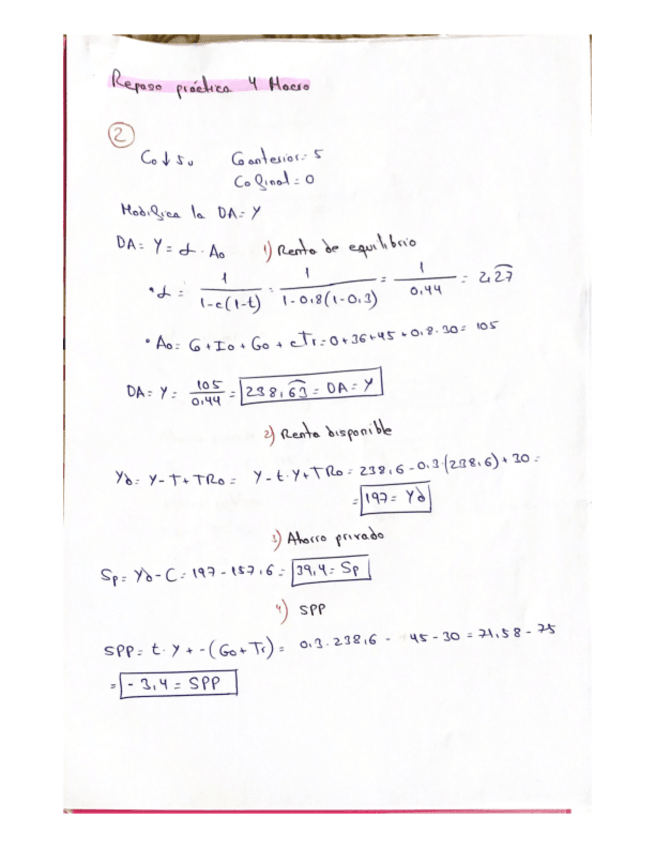 Repaso práctica 4 Macro
2
Co↓5. Co anterior = 5
Co final = 0
Modifica la DA = Y
DA = Y = α · Ao 1) Renta de equilibrio
• α = 1/(1-c(1-t)) = 1/(1-0,8(1-0,3)) = 1/0,44 = 2,27
• Ao = Co + Io + Go + cTr = 0+36+45+0,8·30 = 105
DA = Y = 105/0,44 = 238,63 = DA = Y
2) Renta disponible
Yd = Y-T+TRo = Y-t·Y+TRo = 238,6-0,3·(238,6)+30 =
= 197 = Yd
3) Ahorro privado
Sp = Yd-C = 197-157,6 = 39,4 = Sp
4) SPP
SPP = t·Y + -(Go+Tr) = 0,3·238,6 - 45-30 = 71,58-75
= -3,4 = SPP